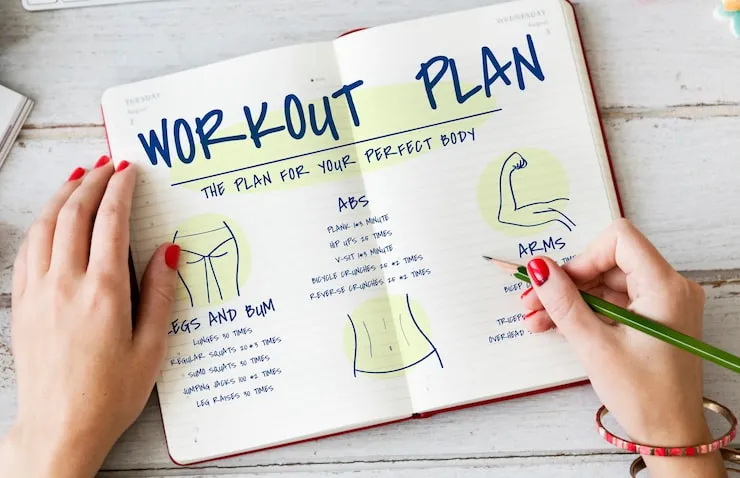 TUESDAY
August
WEDNESDAY
August
WORKOUT PLAN
THE PLAN FOR YOUR PERFECT BODY
LEGS AND BUM
LUNGES 30 TIMES
REGULAR SQUATS 20*3 TIMES
SUMO SQUATS 30 TIMES
JUMPING JACKS 100 *2 TIMES
LEG RAISES 30 TIMES
ABS
PLANK 1*3 MINUTE
HIP UPS 25 TIMES
V-SIT 1*3 MINUTE
BICYCLE CRUNCHES 25 *2 TIMES
REVERSE CRUNCHES 25 *2 TIMES
ARMS
OVERHEAD